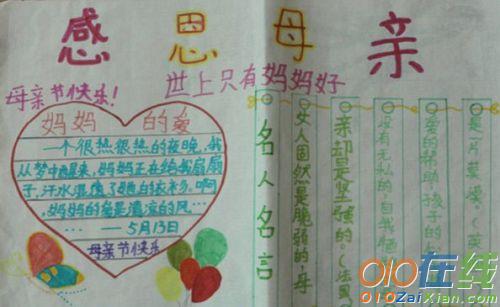 感恩母亲
母亲节快乐！
世上只有妈妈好
妈妈的爱
一个很热很热的夜晚，我
从梦中醒来，妈妈正在给我扇扇
子，汗水湿透了她的衣衫。啊，
妈妈的爱是清凉的风……
——5月13日
母亲节快乐
名人名言
女人固然是脆弱的，母
亲却是坚强的。（法国
没有无私的，自我牺牲
爱的帮助，孩子的
是一片荒漠。（英
010在线
010ZaiXian.com